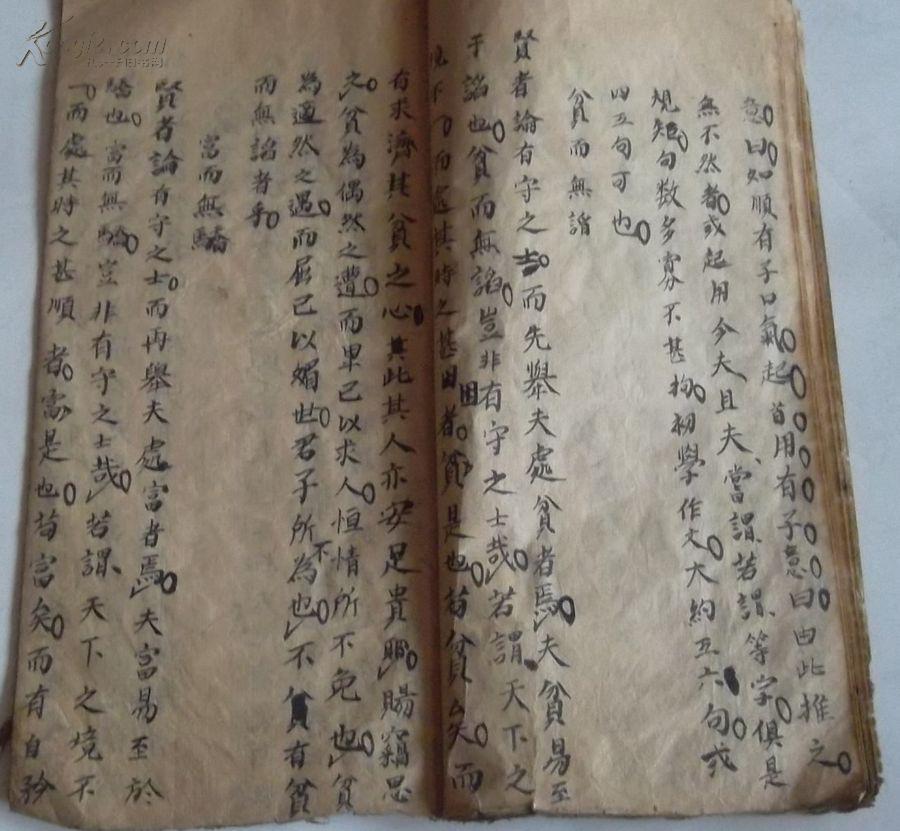 意曰如順有子口氣起首用有子意曰由此推之
無不然者或起用今夫且夫嘗謂若謂等字俱是
規矩句数多寡不甚拘初學作文大約五六句或
四五句可也
貧而無諂
賢者論有守之士而先舉夫處貧者焉夫貧易至
于諂也貧而無諂豈非有守之士哉若謂天下之
而處其時之甚困者貧是也苟貧矣而
有求濟其貧之心其此其人亦安足貴賜竊思
之貧為偶然之遭而卑己以求人恒情所不免也貧
為適然之遇而屈己以媚世君子所不為也不貧有貧
而無諂者乎
富而無驕
賢者論有守之士而再舉夫處富者焉夫富易至於
驕也富而無驕豈非有守之士哉若謂天下之境不
一而處其時之甚順者富是也苟富矣而有自矜